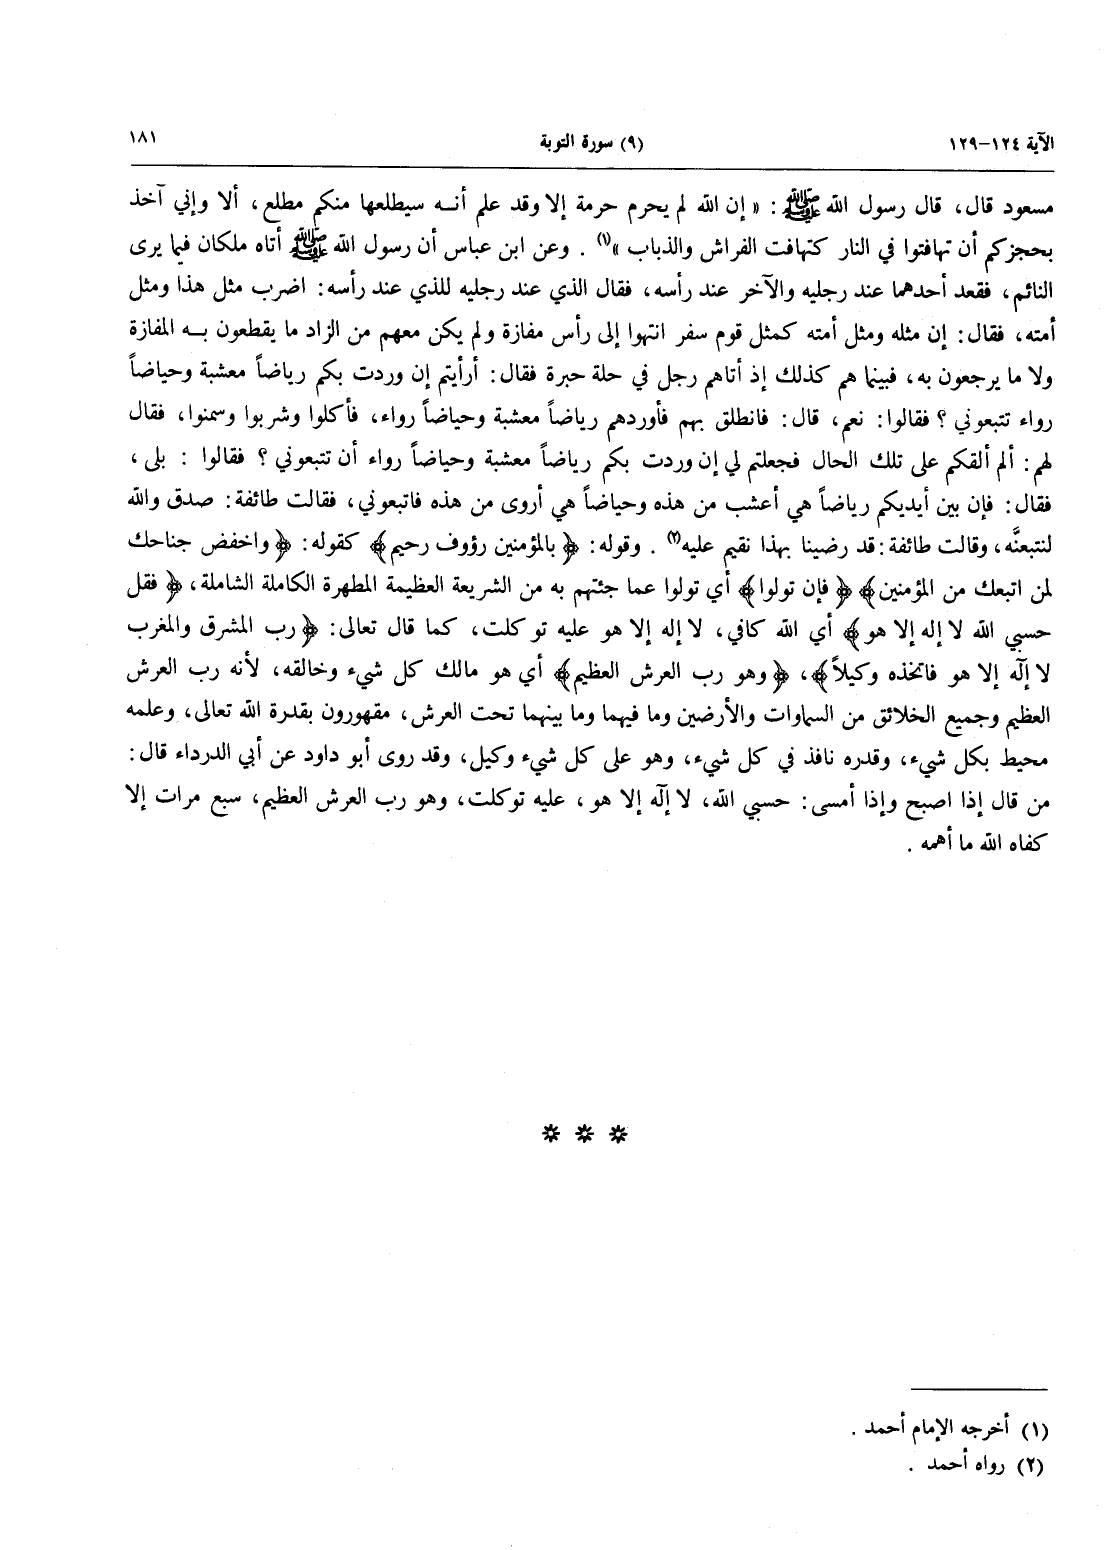 الآية ١٢٤-١٢٩ (٩) سورة التوبة ١٨١
مسعود قال، قال رسول الله ﷺ: « إن الله لم يحرم حرمة إلا وقد علم أنه سيطلعها منكم مطلع، ألا وإني آخذ
بحجزكم أن تهافتوا في النار كتهافت الفراش والذباب »(١) . وعن ابن عباس أن رسول الله ﷺ أتاه ملكان فيما يرى
النائم، فقعد أحدهما عند رجليه والآخر عند رأسه، فقال الذي عند رجليه للذي عند رأسه: اضرب مثل هذا ومثل
أمته، فقال: إن مثله ومثل أمته كمثل قوم سفر انتهوا إلى رأس مفازة ولم يكن معهم من الزاد ما يقطعون به المفازة
ولا ما يرجعون به، فبينما هم كذلك إذ أتاهم رجل في حلة حبرة فقال: أرأيتم إن وردت بكم رياضاً معشبة وحياضاً
رواء تتبعوني ؟ فقالوا: نعم، قال: فانطلق بهم فأوردهم رياضاً معشبة وحياضاً رواء، فأكلوا وشربوا وسمنوا، فقال
لهم: ألم ألقكم على تلك الحال فجعلتم لي إن وردت بكم رياضاً معشبة وحياضاً رواء أن تتبعوني ؟ فقالوا : بلى،
فقال: فإن بين أيديكم رياضاً هي أعشب من هذه وحياضاً هي أروى من هذه فاتبعوني، فقالت طائفة: صدق والله
لنتبعنَّه، وقالت طائفة: قد رضينا بهذا نقيم عليه(٢) . وقوله: ﴿ بالمؤمنين رؤوف رحيم﴾ كقوله: ﴿ واخفض جناحك
لمن اتبعك من المؤمنين﴾ ﴿ فإن تولوا﴾ أي تولوا عما جئتهم به من الشريعة العظيمة المطهرة الكاملة الشاملة، ﴿ فقل
حسبي الله لا إله إلا هو﴾ أي الله كافي، لا إله إلا هو عليه توكلت، كما قال تعالى: ﴿ رب المشرق والمغرب
لا إلٓه إلا هو فاتخذه وكيلاً﴾، ﴿ وهو رب العرش العظيم﴾ أي هو مالك كل شيء وخالقه، لأنه رب العرش
العظيم وجميع الخلائق من السماوات والأرضين وما فيهما وما بينهما تحت العرش، مقهورون بقدرة الله تعالى، وعلمه
محيط بكل شيء، وقدره نافذ في كل شيء، وهو على كل شيء وكيل، وقد روى أبو داود عن أبي الدرداء قال:
من قال إذا اصبح وإذا أمسى: حسبي الله، لا إلٓه إلا هو، عليه توكلت، وهو رب العرش العظيم، سبع مرات إلا
كفاه الله ما أهمه .
* * *
(١) أخرجه الإمام أحمد .
(٢) رواه أحمد .